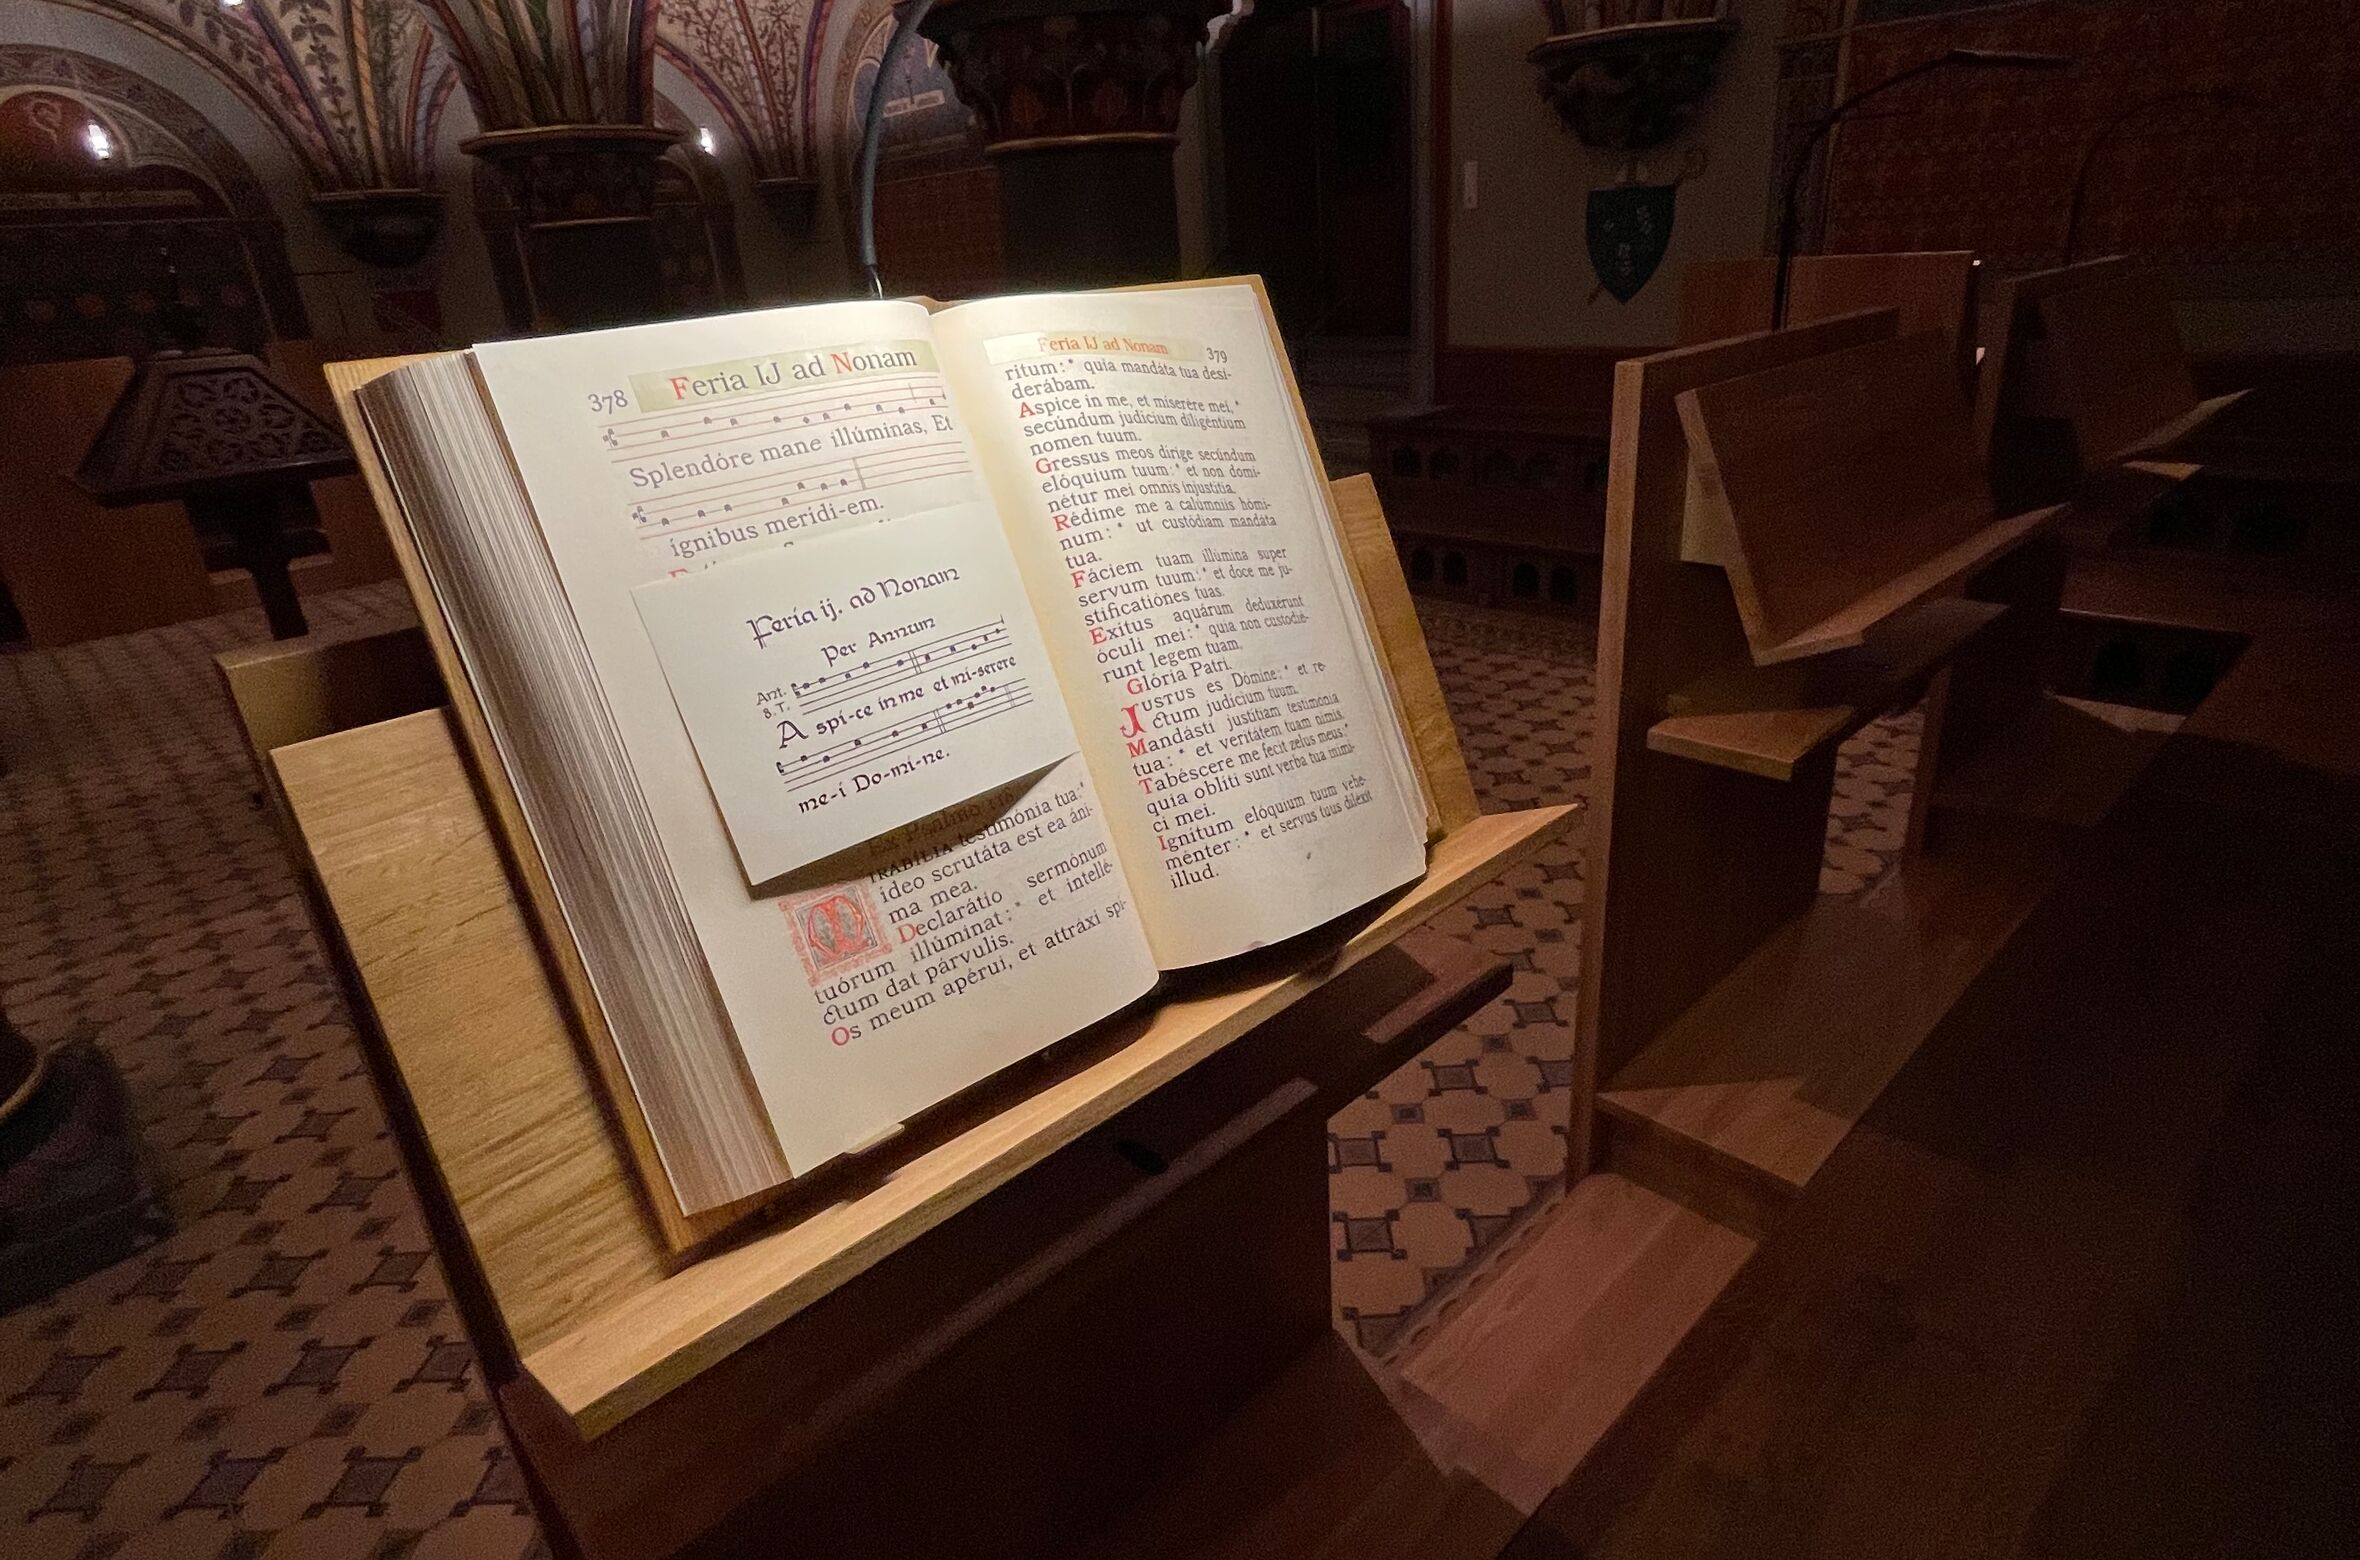 378 Feria IJ ad Nonam
Splendóre mane illúminas, Et
ígnibus merídi-em.
Feria ij. ad Nonam
Per Annum
Ant.
8. T.
A spi-ce in me et mi-serere
me-i Do-mi-ne.
Ex Psalmo
IRABÍLIA testimónia tua:*
ídeo scrutáta est ea áni-
ma mea.
Declarátio sermónum
tuórum illúminat:* et intellé-
ctum dat párvulis.
Os meum apérui, et attráxi spí-
Feria IJ ad Nonam 379
ritum:* quia mandáta tua desi-
derábam.
Aspice in me, et miserére mei,*
secúndum judícium diligéntium
nomen tuum.
Gressus meos dírige secúndum
elóquium tuum:* et non domi-
nétur mei omnis injustítia.
Rédime me a calúmniis hómi-
num:* ut custódiam mandáta
tua.
Fáciem tuam illúmina super
servum tuum:* et doce me ju-
stificatiónes tuas.
Exitus aquárum deduxérunt
óculi mei:* quia non custodié-
runt legem tuam.
Glória Patri.
JUSTUS es Dómine:* et re-
ctum judícium tuum.
Mandásti justítiam testimónia
tua:* et veritátem tuam nimis.
Tabéscere me fecit zelus meus:*
quia oblíti sunt verba tua inimí-
ci mei.
Ignítum elóquium tuum vehe-
ménter:* et servus tuus diléxit
illud.